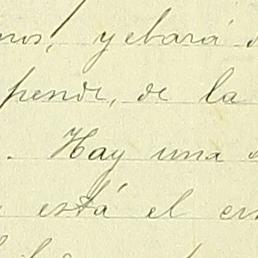 nos, y ebará
pende, de la
. Hay una
está el en